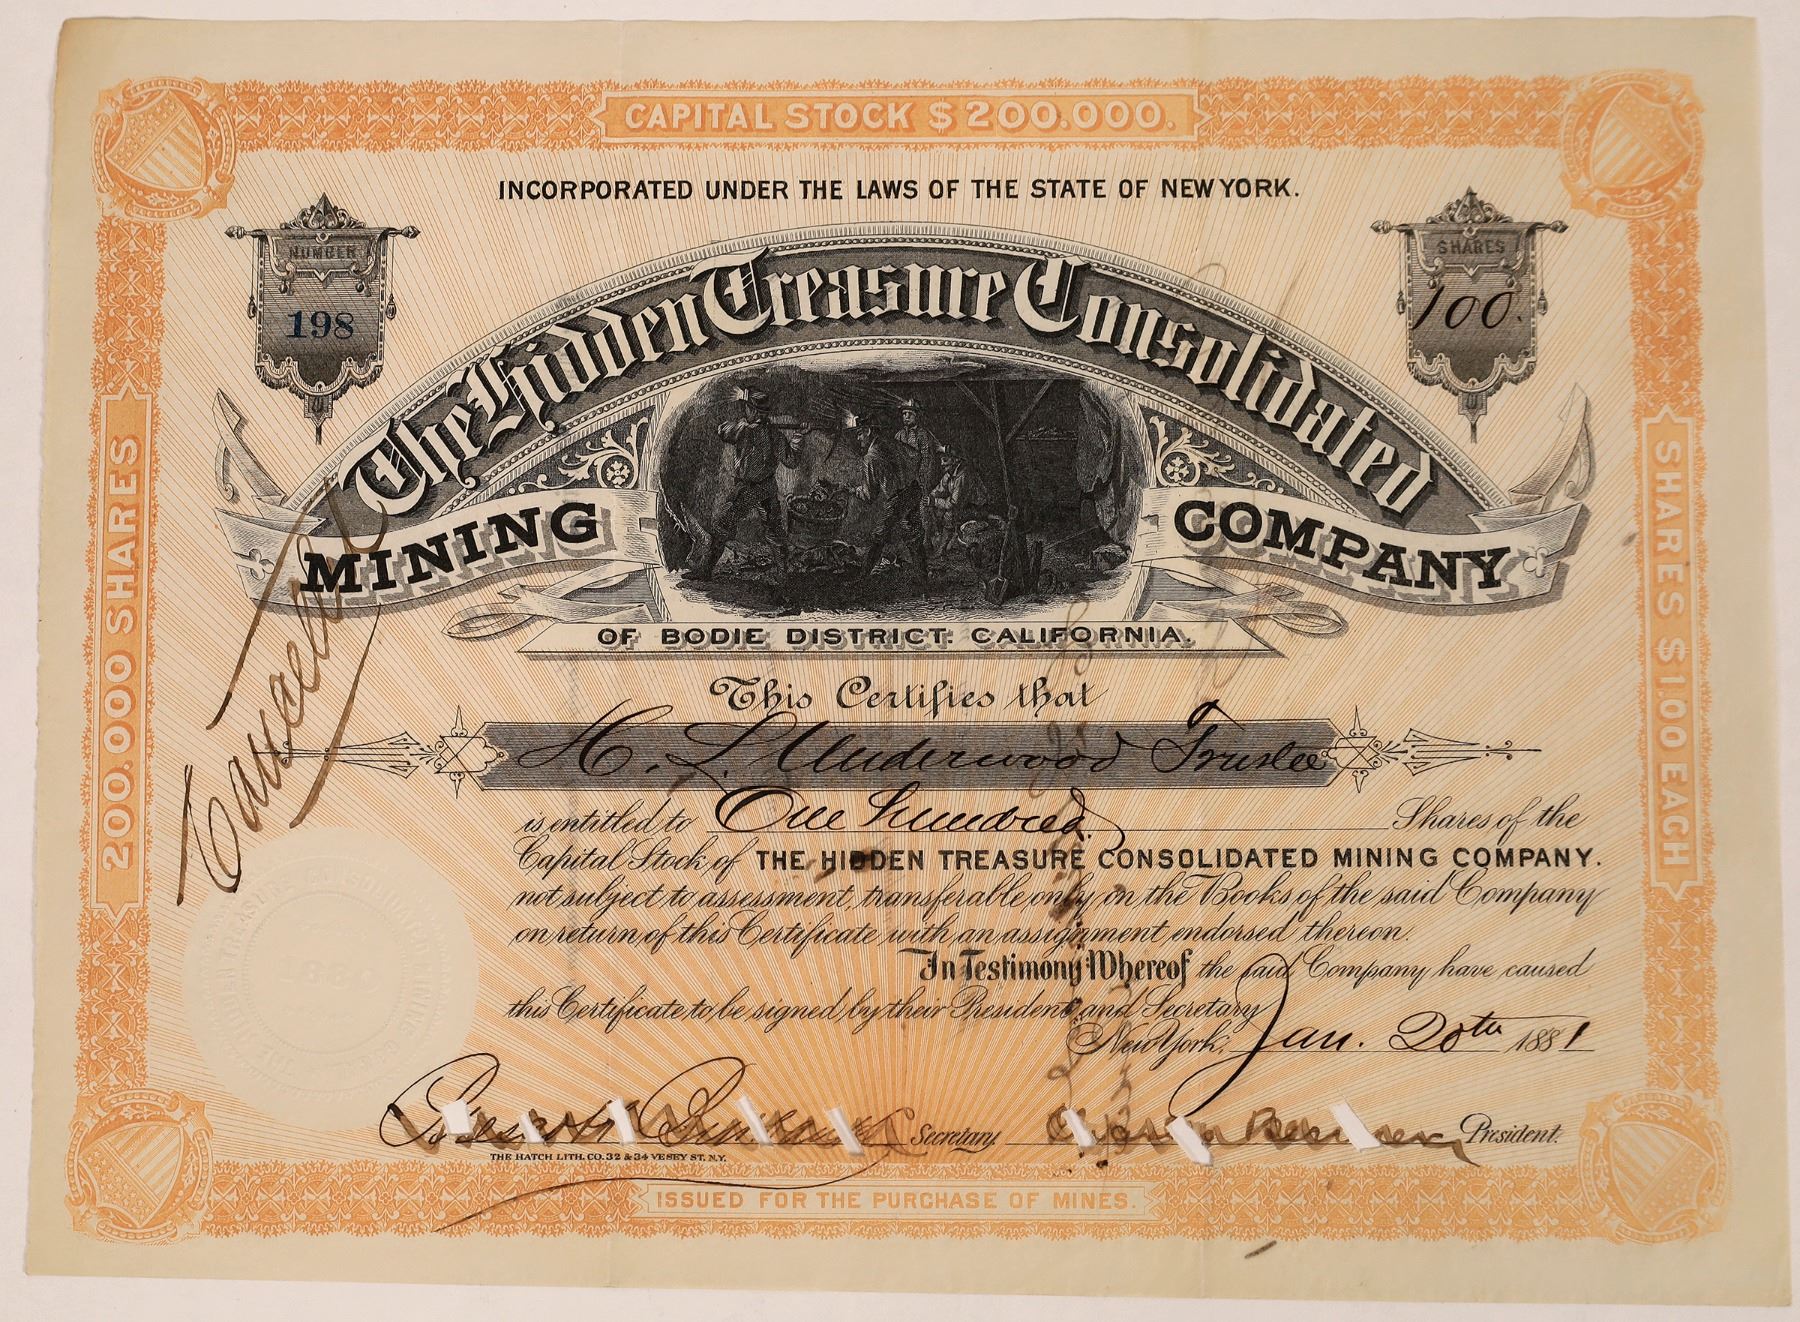 CAPITAL STOCK $200.000.
INCORPORATED UNDER THE LAWS OF THE STATE OF NEW YORK.
NUMBER
198
SHARES
100.
The Hidden Treasure Consolidated
MINING COMPANY
OF BODIE DISTRICT CALIFORNIA.
200.000 SHARES
SHARES $1.00 EACH
Cancelled
This Certifies that
H. L. Underwood Trustee
is entitled to One Hundred Shares of the
Capital Stock of THE HIDDEN TREASURE CONSOLIDATED MINING COMPANY.
not subject to assessment, transferable only on the Books of the said Company
on return of this Certificate with an assignment endorsed thereon.
In Testimony Whereof the said Company have caused
this Certificate to be signed by their President and Secretary
New York, Jan. 20th 1881
Secretary
President.
THE HATCH LITH. CO. 32 & 34 VESEY ST. N.Y.
ISSUED FOR THE PURCHASE OF MINES.